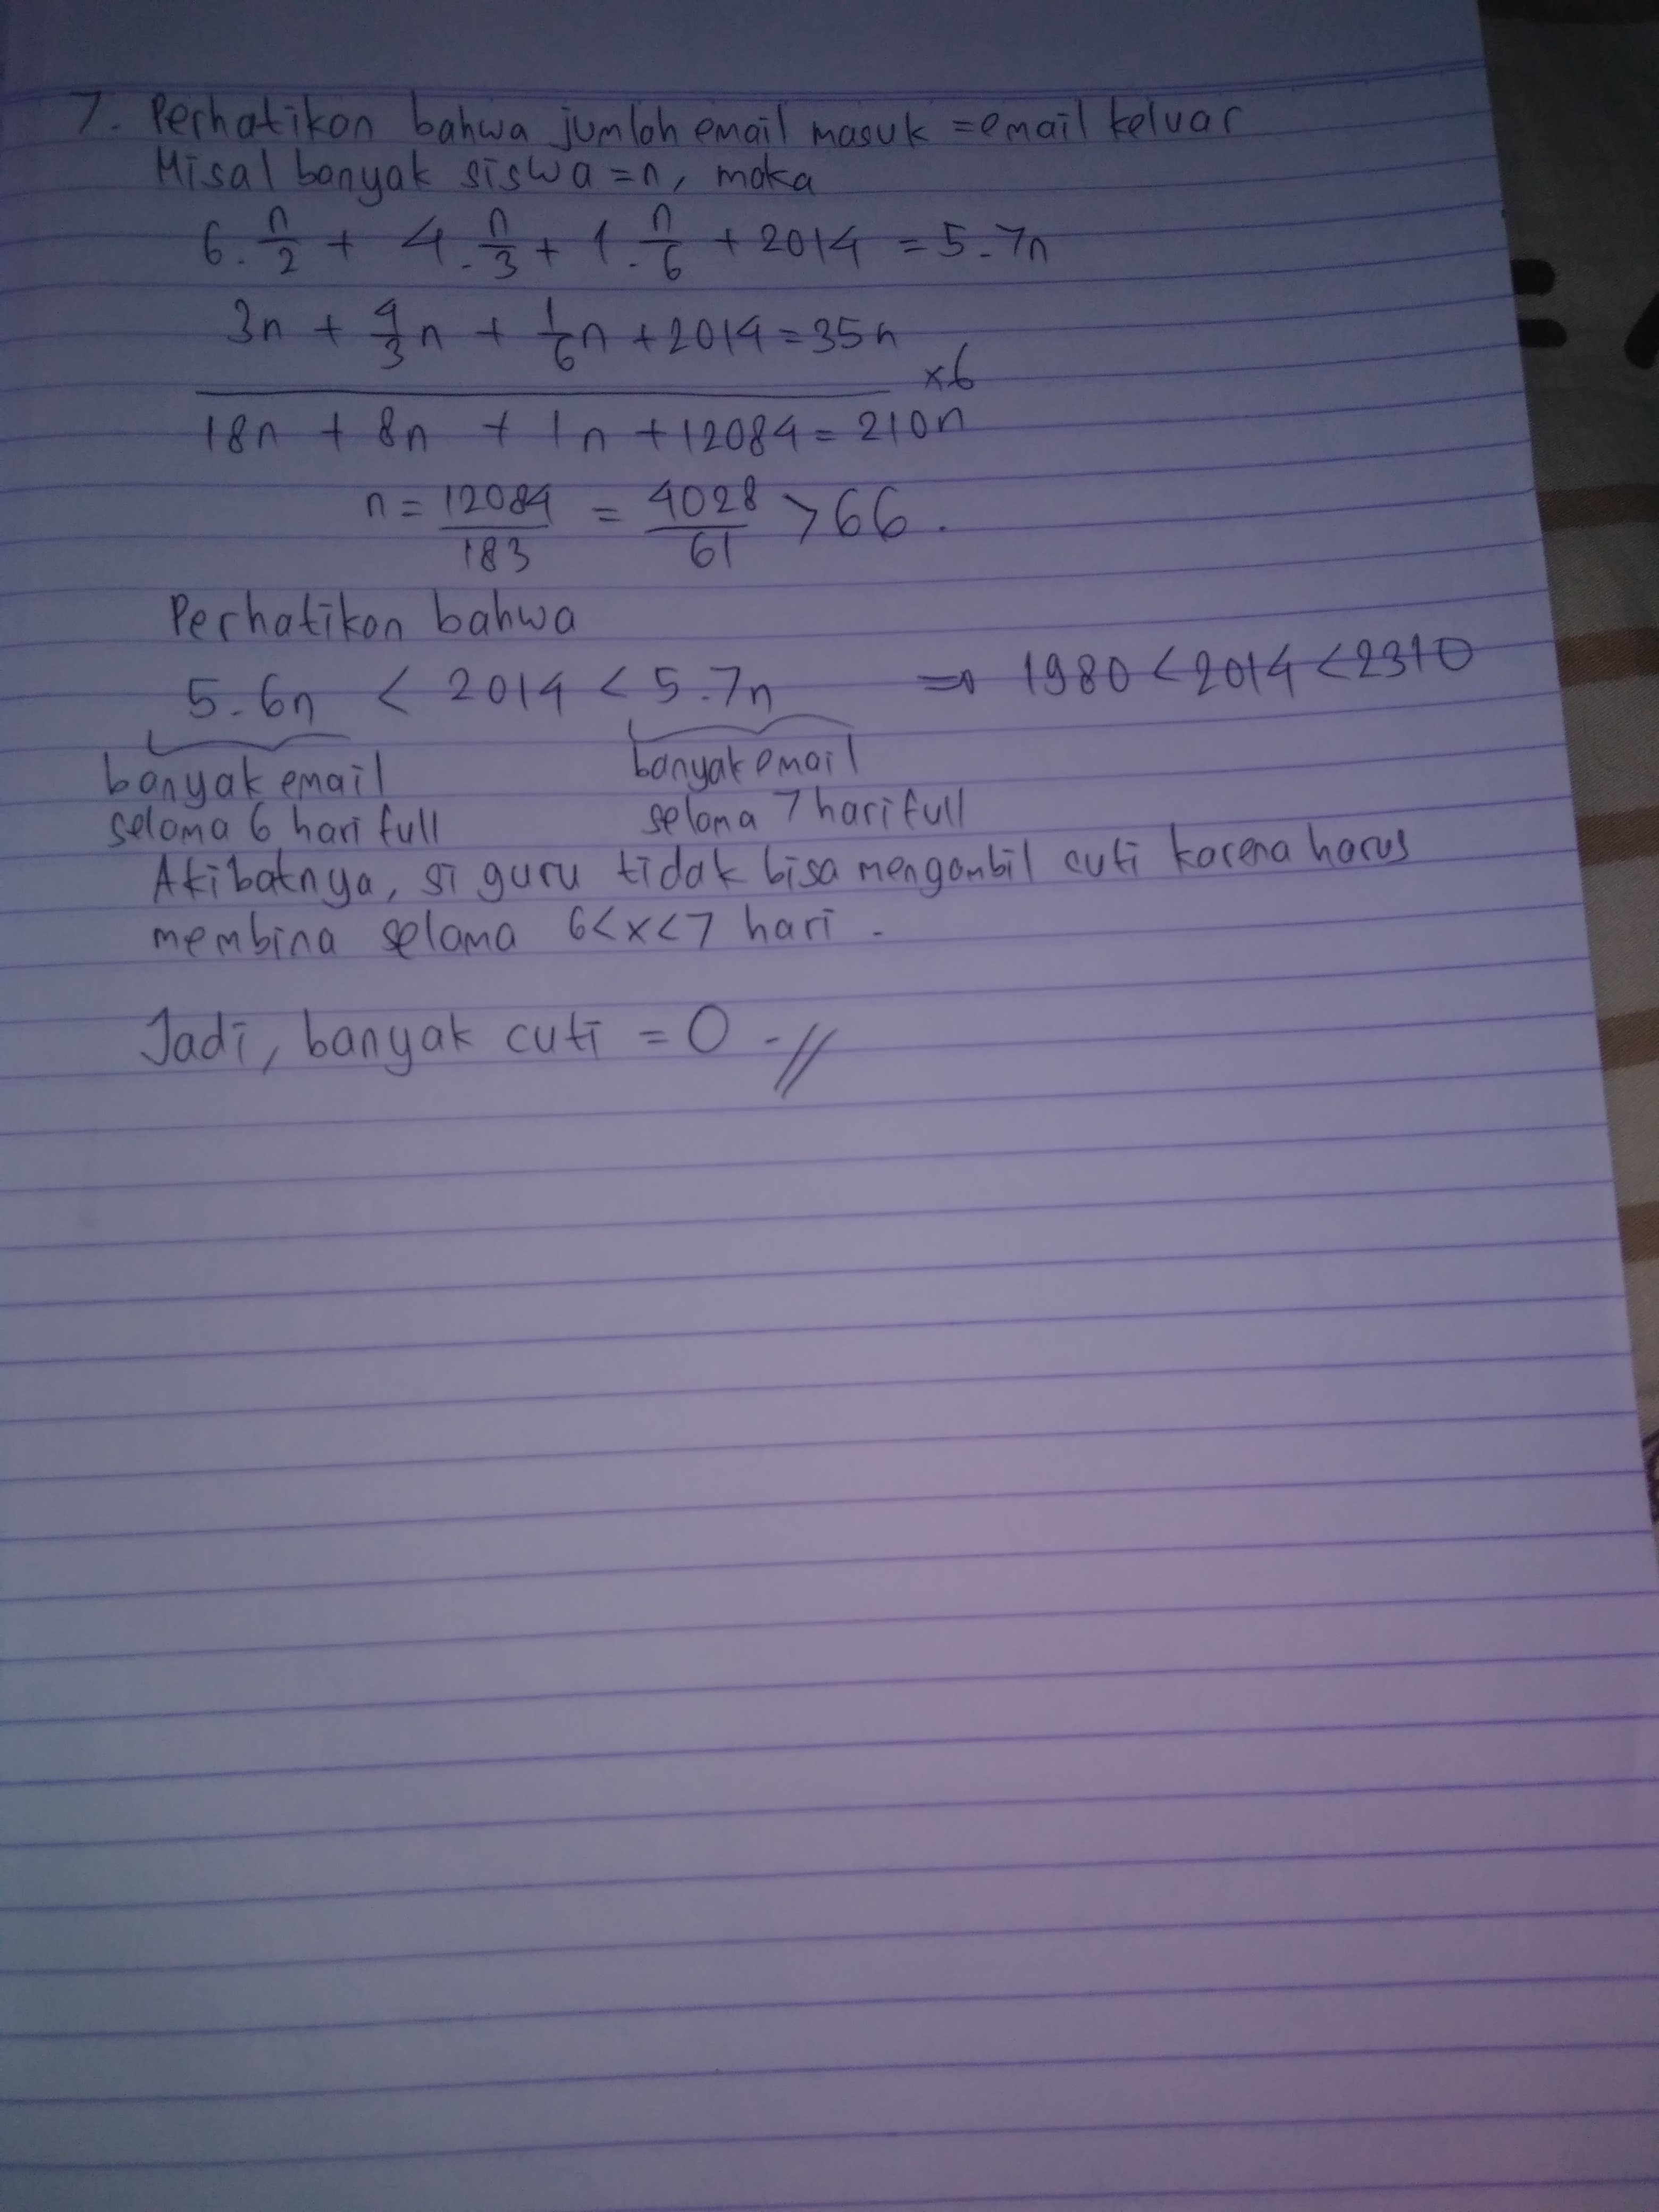 7. Perhatikan bahwa jumlah email masuk = email keluar
Misal banyak siswa = n, maka
6 . n/2 + 4 . n/3 + 1 . n/6 + 2014 = 5 . 7n
3n + 4/3 n + 1/6 n + 2014 = 35n
×6
18n + 8n + 1n + 12084 = 210n
n = 12084/183 = 4028/61 > 66 .
Perhatikan bahwa
5 . 6n < 2014 < 5 . 7n ⇒ 1980 < 2014 < 2310
banyak email banyak email
selama 6 hari full selama 7 hari full
Akibatnya, si guru tidak bisa mengambil cuti karena harus
membina selama 6 < x < 7 hari .
Jadi, banyak cuti = 0 . //